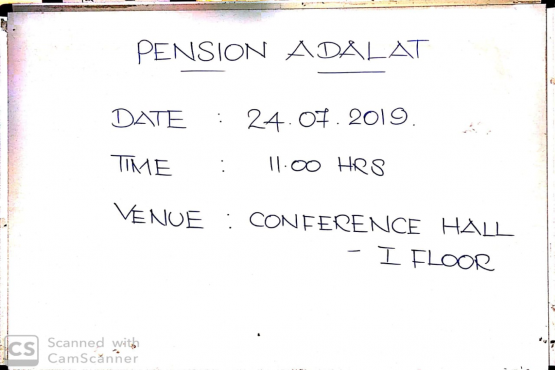 PENSION ADALAT
DATE : 24.07.2019.
TIME : 11.00 HRS
VENUE : CONFERENCE HALL
- I FLOOR
CS Scanned with
CamScanner